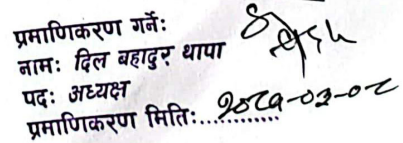 प्रमाणिकरण गर्नेः
नामः दिल बहादुर थापा
पदः अध्यक्ष
प्रमाणिकरण मितिः............